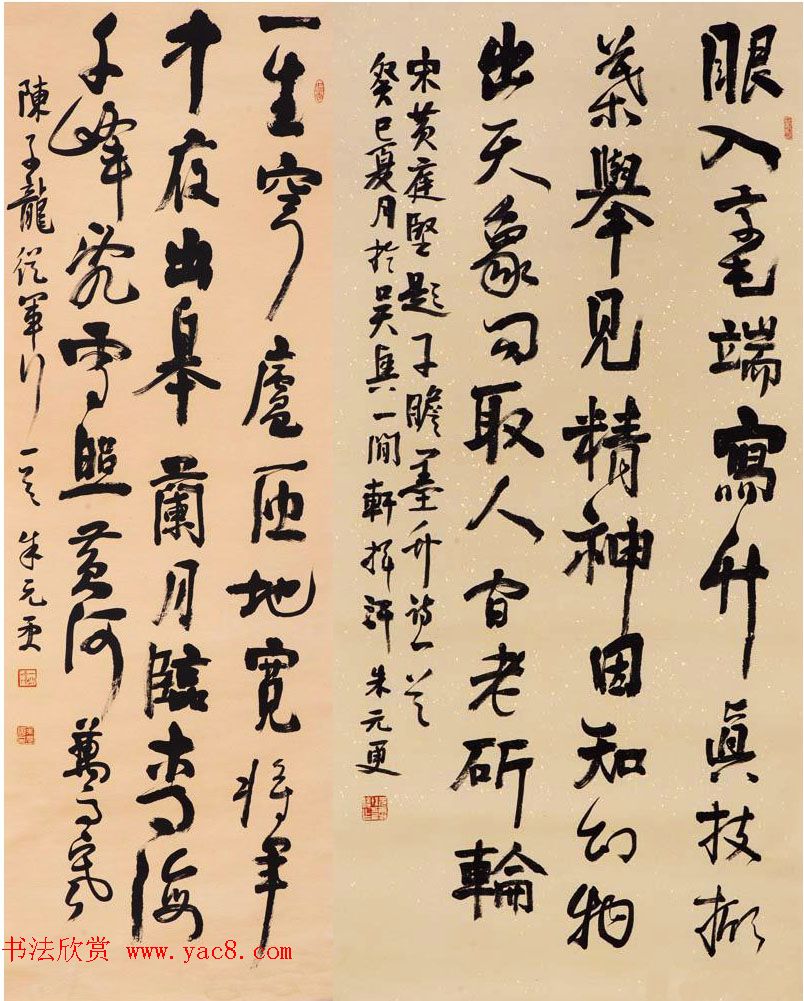 眼入毫端寫竹真枝掀
葉舉見精神因知幻物
出天象問取人間老斫輪
宋黃庭堅題子瞻墨竹詩一首
癸巳夏月於吳興一閒軒揮汗 朱元更
一片穹廬匝地寬將軍
午夜出皋蘭月臨青海
千峰亂雪照黃河萬馬寒
陳子龍從軍行一首 朱元更
书法欣赏 www.yac8.com